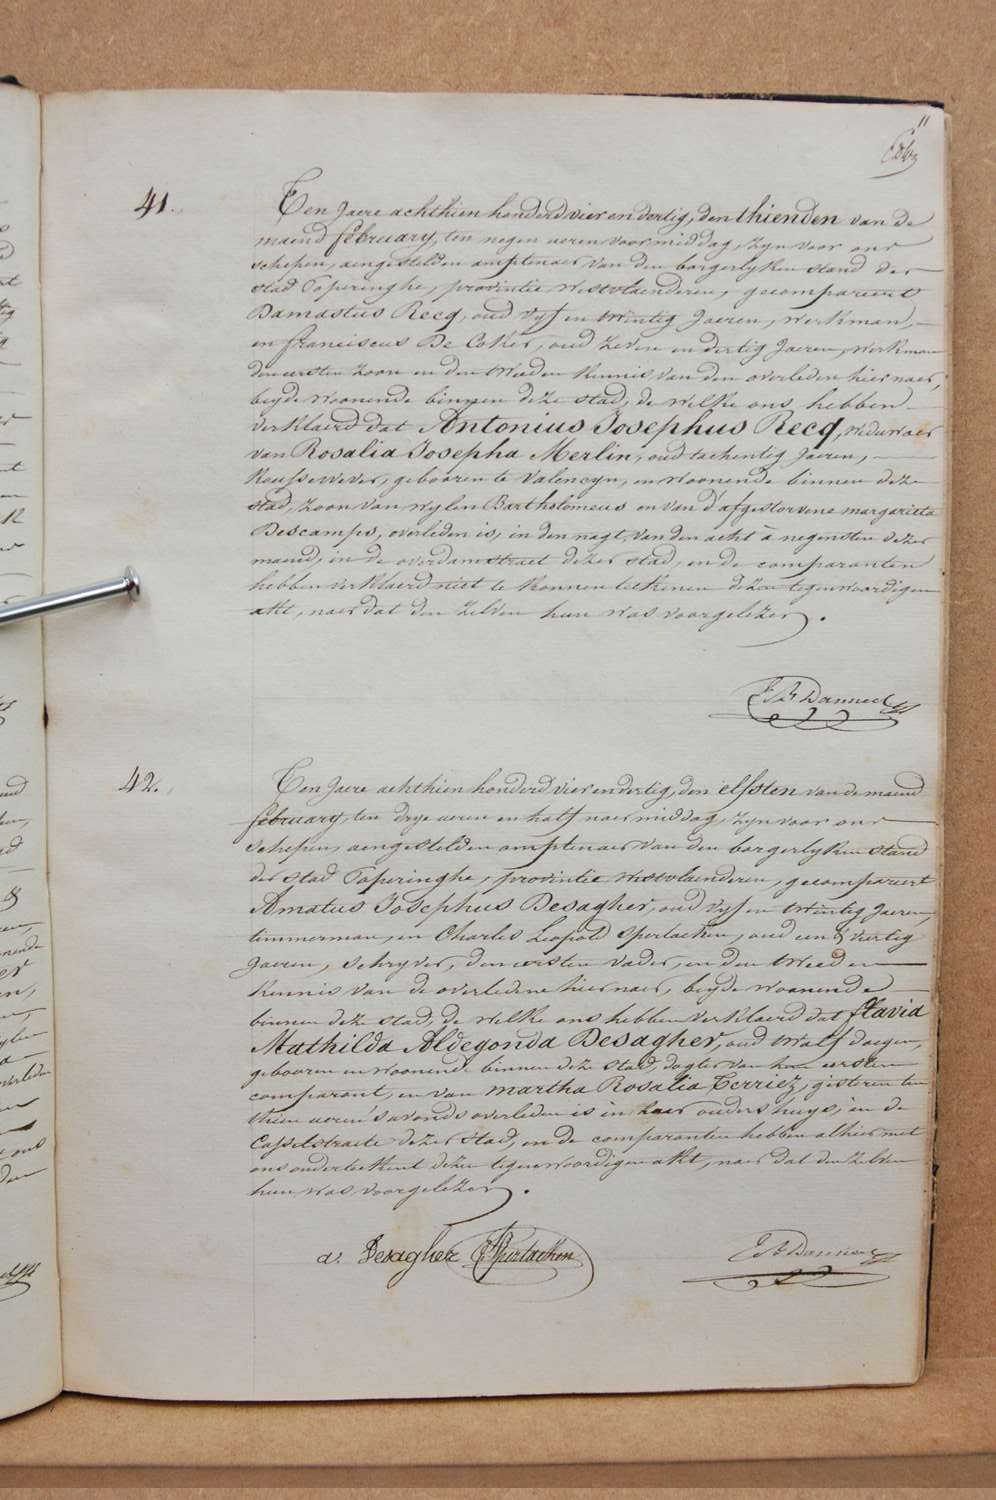 11
41.
Ten Jaere achthien honderd vier en dertig, den thienden van de
maend february, ten negen ueren voormiddag, zyn voor ons
schepen, aengestelden amptenaer van den borgerlyken stand der
stad Poperinghe, provintie westvlaenderen, gecompareert
Damastus Recq, oud vyf en twintig Jaeren, werkman,
en franciscus De Coker, oud zeven en dertig Jaeren, werkman
den eersten zoon en den tweeden kennis van den overleden hier naer,
beyde woonende binnen deze stad, de welke ons hebben
verklaerd dat Antonius Josephus Recq, weduwaer
van Rosalia Josepha Merlin, oud tachentig Jaeren,
Koussewever, gebooren te Valencyn, en woonende binnen deze
stad, zoon van wylen Bartholomeus en van d'afgestorvene margarieta
Descamps, overleden is, in den nagt van den acht à negensten dezer
maend, in de overdamstraet dezer stad, en de comparanten
hebben verklaerd niet te konnen teekenen dezen tegenwoordigen
akt, naer dat den zelven hun was voorgelezen.
J B Danneel
42.
Ten Jaere achthien honderd vier en dertig, den elfsten van de maend
february, ten drye ueren en half naermiddag, zyn voor ons
schepen, aengestelden amptenaer van den borgerlyken stand
der stad Poperinghe, provintie westvlaenderen, gecompareert
Amatus Josephus Desagher, oud vyf en twintig Jaeren,
timmerman, en Charles Leopold Spertacken, oud een & viertig
Jaeren, schryver, den eersten vader, en den tweeden
kennis van de overledene hier naer, beyde woonende
binnen deze stad, de welke ons hebben verklaerd dat flavia
Mathilda Aldegonda Desagher, oud twalf daegen,
gebooren en woonende binnen deze stad, dogter van den eersten
comparant, en van martha Rosalia Terriez, gisteren ten
thien ueren s'avonds overleden is in haer ouders huys, in de
Casselstraete dezer stad, en de comparanten hebben alhier met
ons onderteekent dezen tegenwoordigen akt, naer dat den zelven
hun was voorgelezen.
a. Desagher Spertacken
J B Danneel